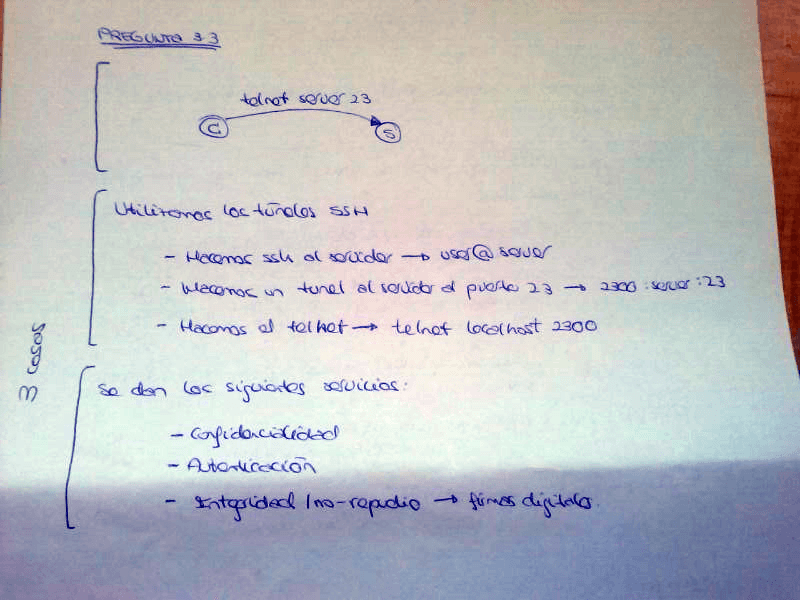 PREGUNTA 3 3
telnet server 23
C
S
Utilizamos los túneles SSH
- Hacemos ssh al servidor → user@server
- Hacemos un tunel al servidor al puerto 23 → 2300:server:23
- Hacemos el telnet → telnet localhost 2300
3 cosas
Se dan los siguientes servicios:
- Confidencialidad
- Autenticación
- Integridad / no-repudio → firmas digitales.